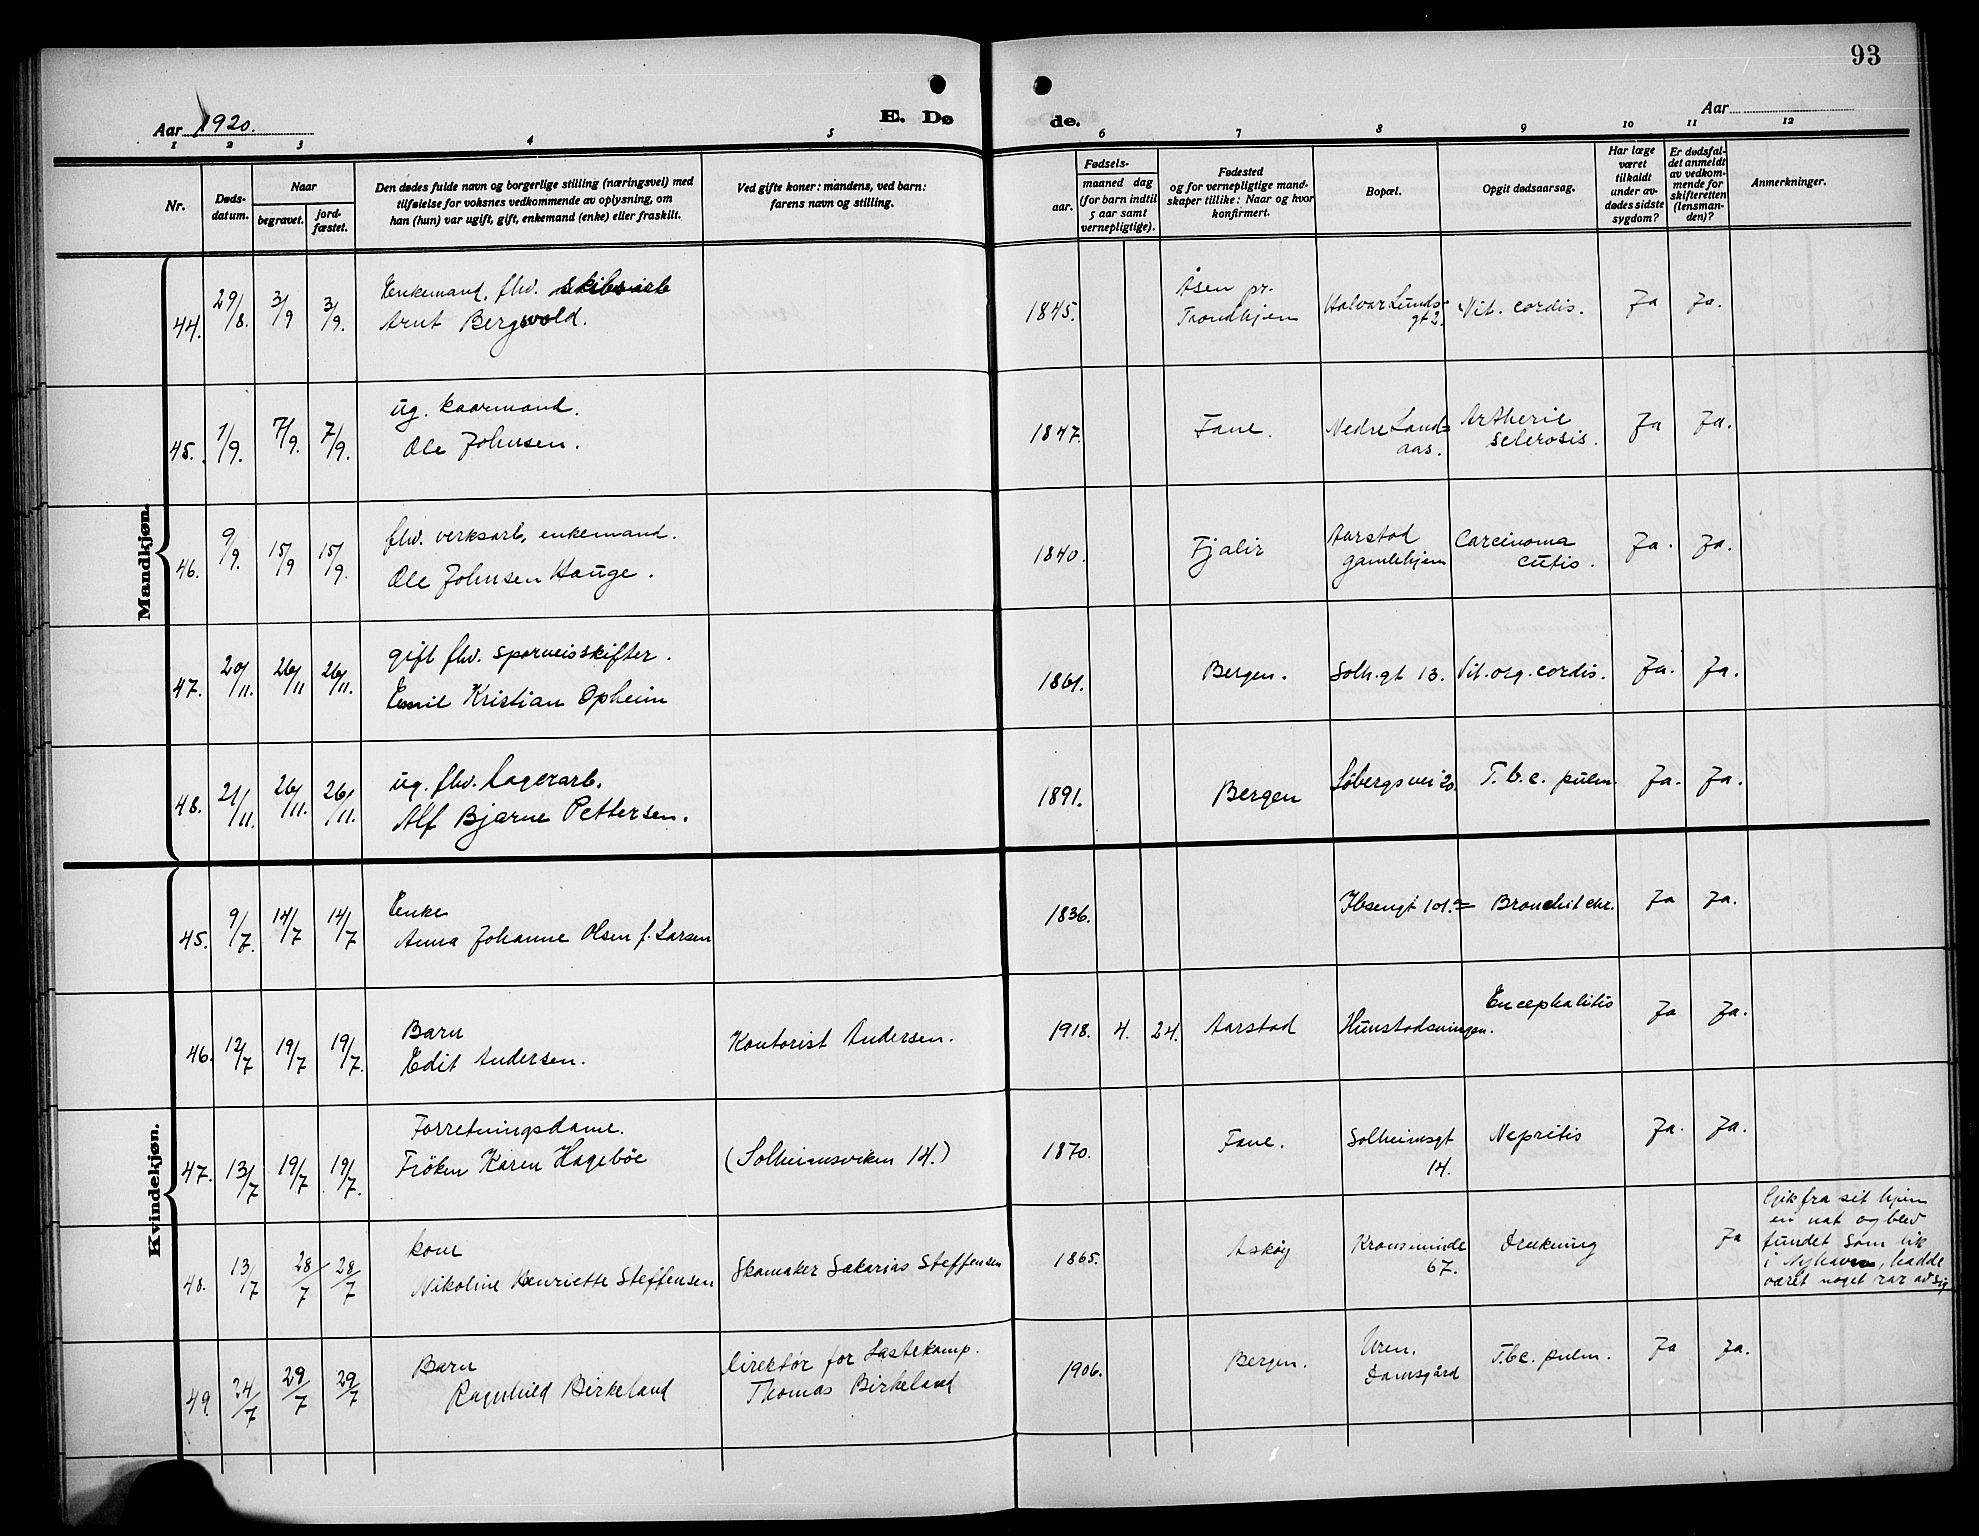 93
Aar 1920.
E. Dø
de.
Aar
1 2 3 4 5 6 7 8 9 10 11 12
Nr.
Døds-
datum.
Naar
begravet.
jord-
fæstet.
Den dødes fulde navn og borgerlige stilling (næringsvei) med
tilføielse for voksnes vedkommende av oplysning, om
han (hun) var ugift, gift, enkemand (enke) eller fraskilt.
Ved gifte koner: mandens, ved barn:
farens navn og stilling.
Fødsels-
aar.
maaned dag
(for barn indtil
5 aar samt
vernepligtige).
Fødested
og for vernepligtige mand-
skaper tillike: Naar og hvor
konfirmert.
Bopæl.
Opgit dødsaarsag.
Har læge
været
tilkaldt
under av-
dødes sidste
sygdom?
Er dødsfal-
det anmeldt
av vedkom-
mende for
skifteretten
(lensman-
den)?
Anmerkninger.
Mandkjøn.
44. 29/8. 3/9 3/9.
Enkemand, fhv. skibsarb
Arnt Bergsvold.
1845.
Åsen pr.
Trondhjem
Halvar Lunds-
gt 2.
Vit. cordis.
Ja
Ja.
45. 1/9. 7/9. 7/9.
ug. kaarmand.
Ole Johnsen.
1847.
Fane.
Nedre Land=
aas.
Artherie
sclerosis.
Ja
Ja.
46. 9/9. 15/9 15/9.
fhv. verksarb, enkemand.
Ole Johnsen Hauge.
1840.
Fjalir
Aarstad
gamlehjem
Carcinoma
cutis.
Ja.
Ja.
47. 20/11. 26/11 26/11.
gift fhv. sporveisskifter.
Emil Kristian Opheim
1861.
Bergen.
Solh.gt 13.
Vit. org. cordis.
Ja.
Ja.
48. 21/11. 26/11. 26/11.
ug. fhv. Lagerarb.
Alf Bjarne Pettersen.
1891.
Bergen
Løbergsvei 20.
T.b.c. pulm.
Ja.
Ja.
Kvindekjøn.
45. 9/7. 14/7 14/7
Enke
Anna Johanne Olsen f. Larsen
1836.
Ibsengt 101.a=
Bronchit chr.
Ja
Ja.
46. 12/7 19/7 19/7.
Barn
Edit Andersen.
Kontorist Andersen.
1918. 4. 24.
Aarstad
Hunstadsvingen.
Encephalitis
Ja
Ja.
47. 13/7 19/7 19/7.
Forretningsdame.
Frøken Karen Hagebøe
(Solheimsviken 14.)
1870.
Fane.
Solheimsgt
14.
Nepritis
Ja.
Ja.
48. 13/7 28/7 28/7
kone
Nikoline Henriette Steffensen
Skomaker Sakarias Steffensen
1865.
Askøy
Kronsminde
67.
Drukning
Ja
Gik fra sit hjem
en nat og blev
fundet som lik
i Nyhavn, hadde
været noget rar av sig
49. 24/7 29/7 29/7
Barn
Ragnhild Birkeland
Direktør for Lastekomp.
Thomas Birkeland
1906.
Bergen.
Uren,
Damsgård
T.bc. pulm.
Ja
Ja.